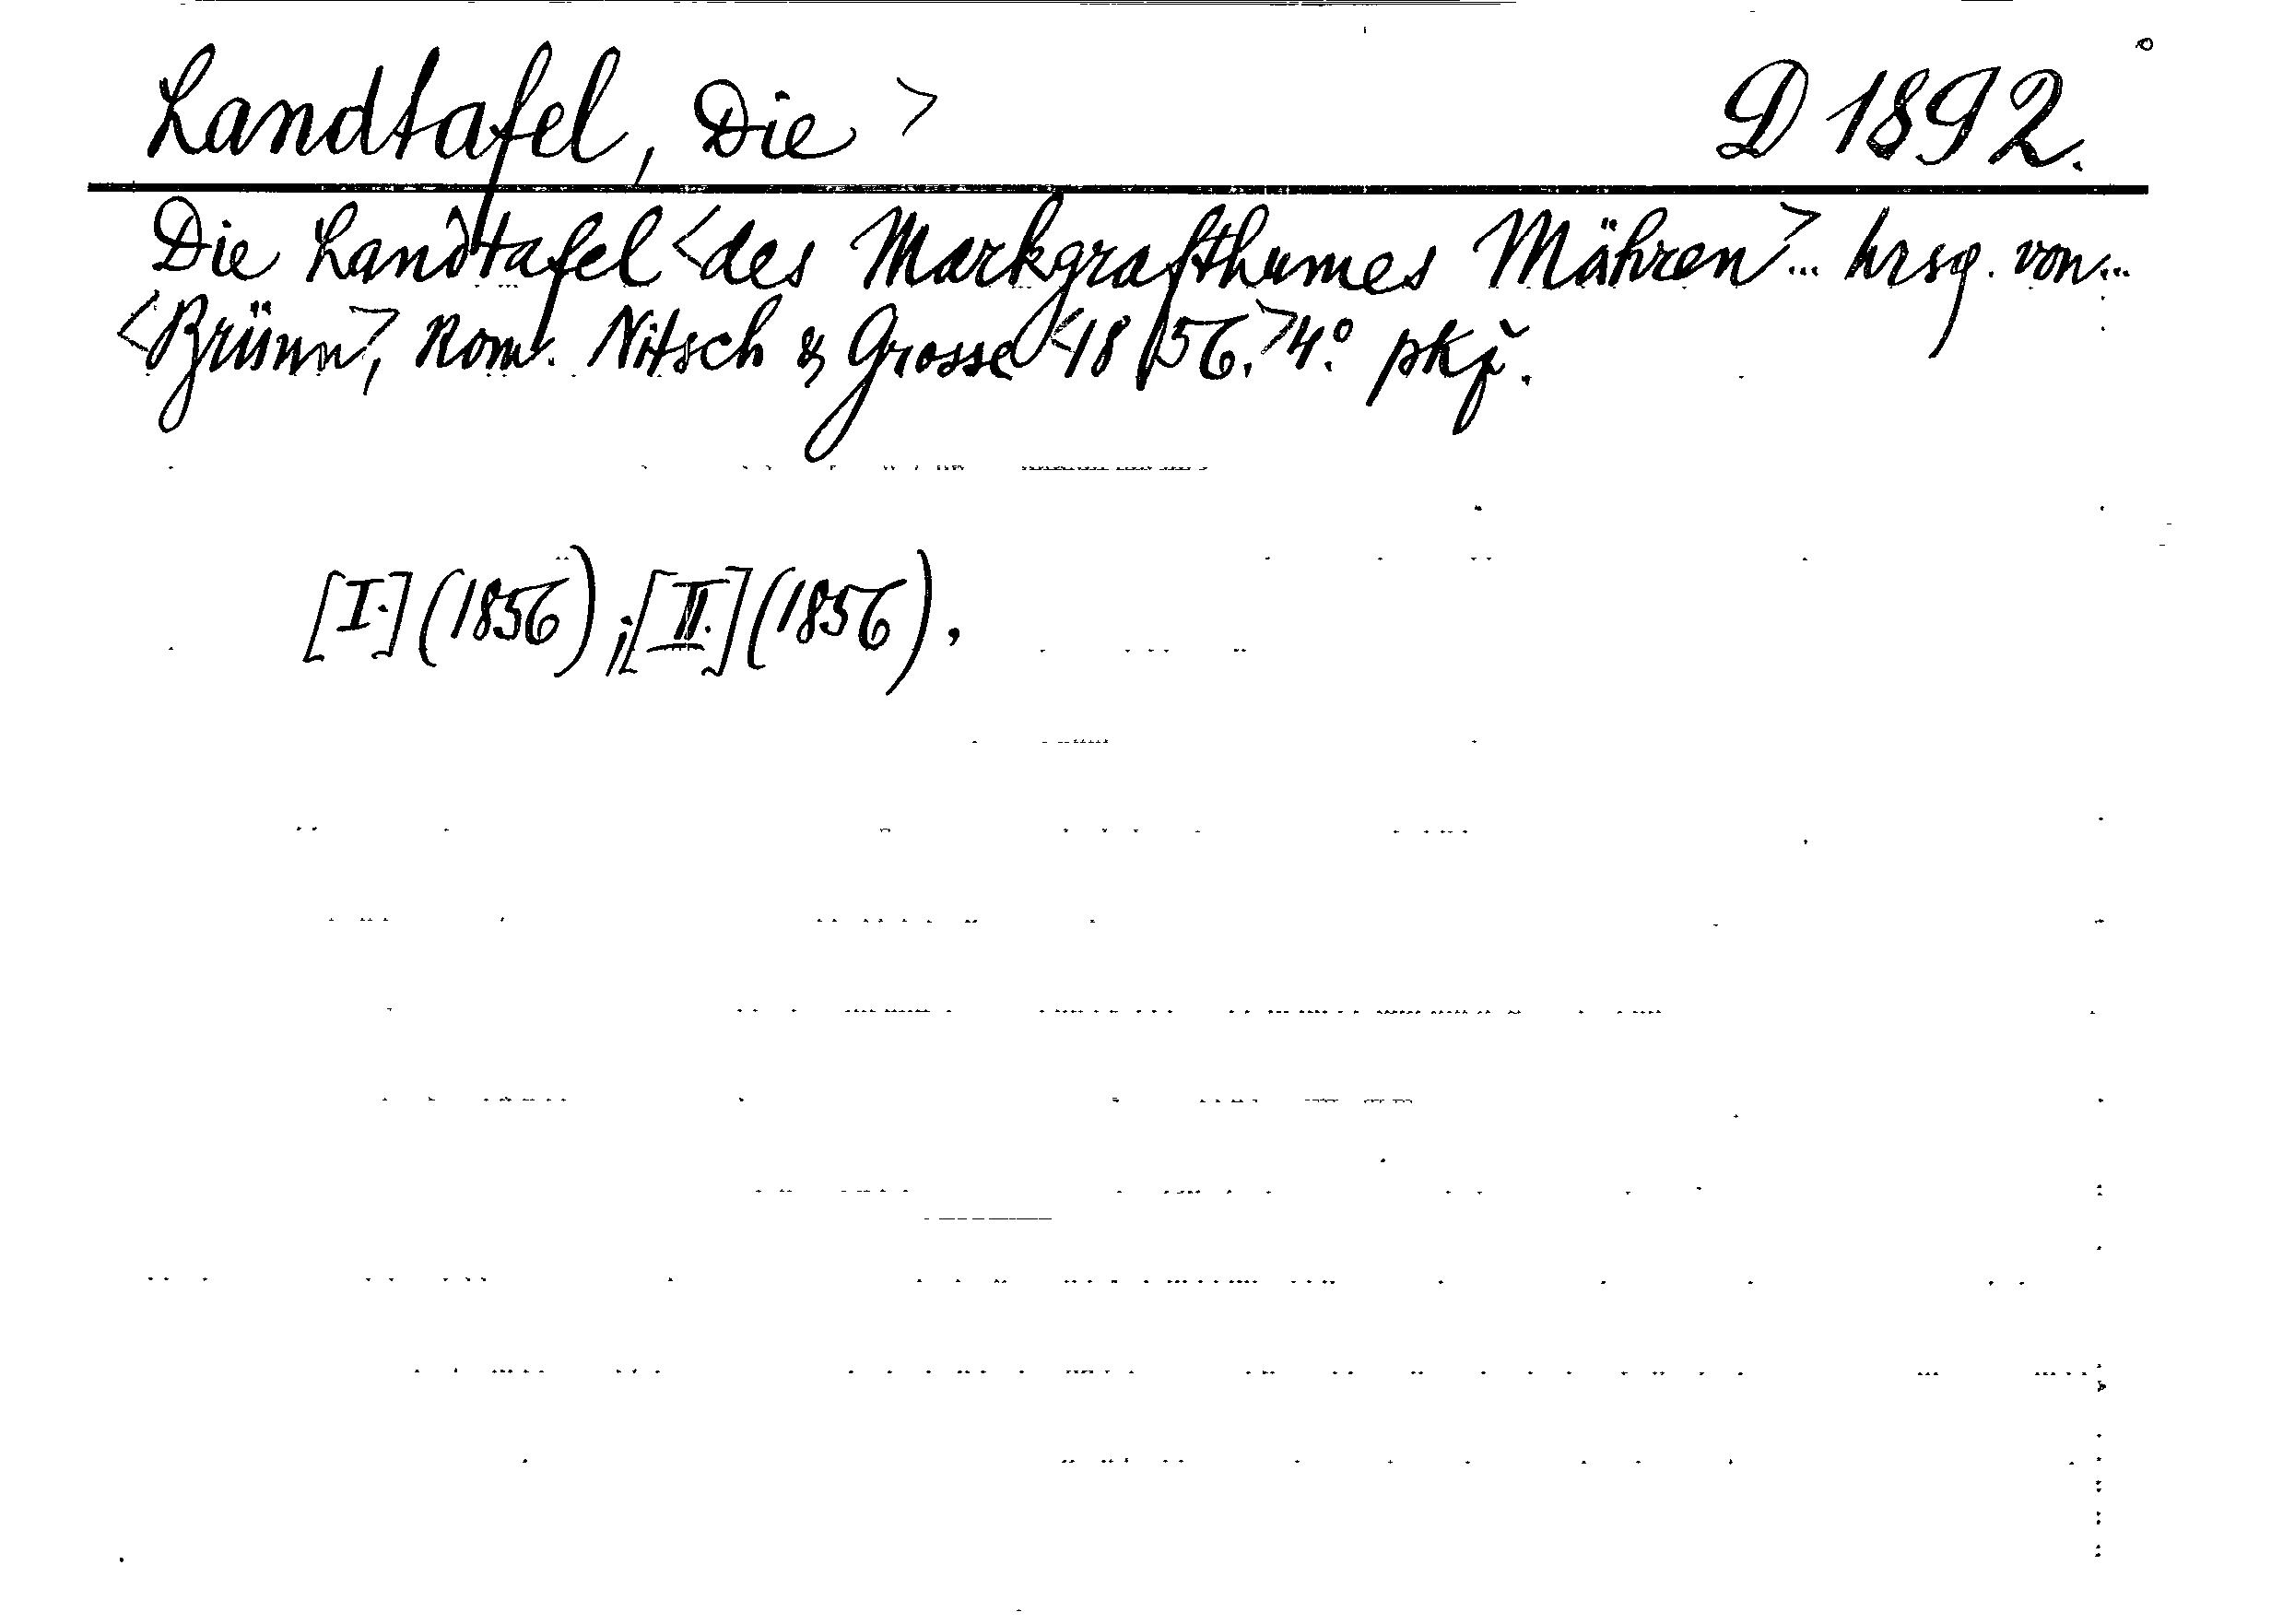 Landtafel, Die > D 1892.
Die Landtafel <des Markgrafthumes Mähren> ... hrsg. von ...
<Brünn>, Kom. Nitsch & Grosse <1856.> 4° pkž.
[I.] (1856); [II.] (1856),